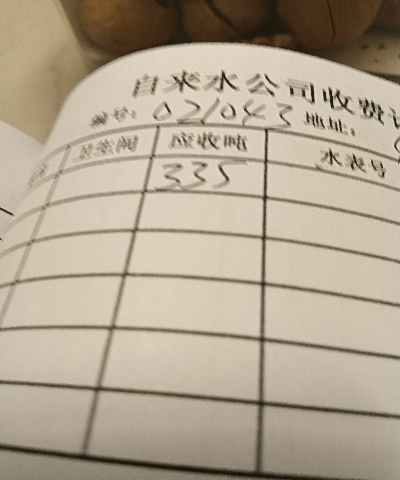 自来水公司收费
编号：021043 地址：
卫生间 应收吨 水表号
335